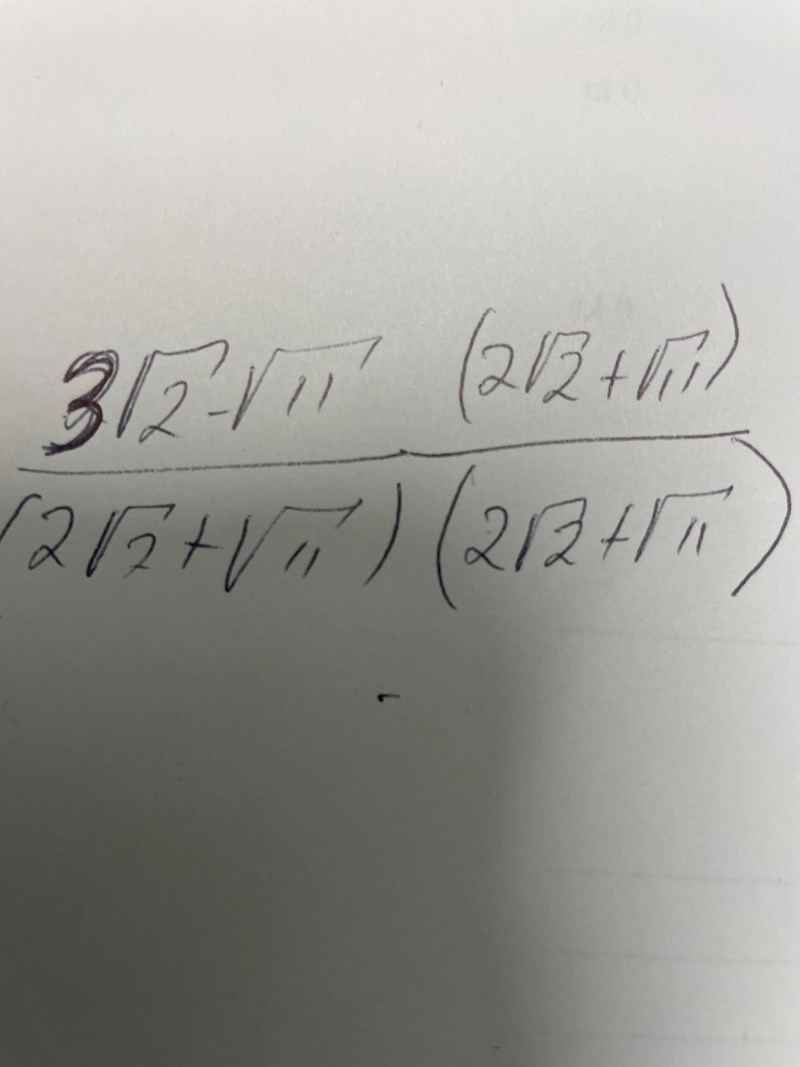 3√2-√11 (2√2+√11)
(2√2+√11)(2√2+√11)